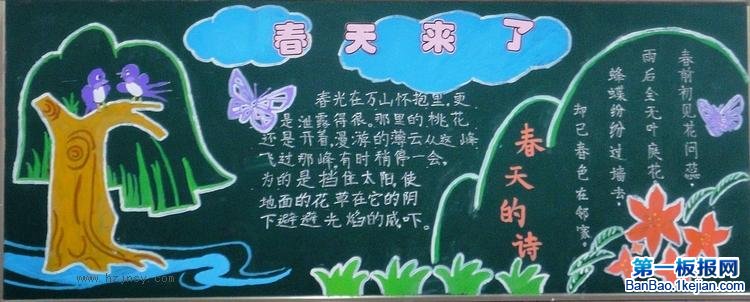 春天来了
春光在万山怀抱里,更
是泄露得很。那里的桃花
还是开着,漫游的薄云从这峰
飞过那峰,有时稍停一会。
为的是挡住太阳,使
地面的花草在它的阴
下避避光焰的威吓。
春天的诗
春前初见花问蕊,
雨后全无叶底花
蜂蝶纷纷过墙去,
却已春色在邻家。
www.hzjney.com
第一板报网
BanBao.1kejian.com